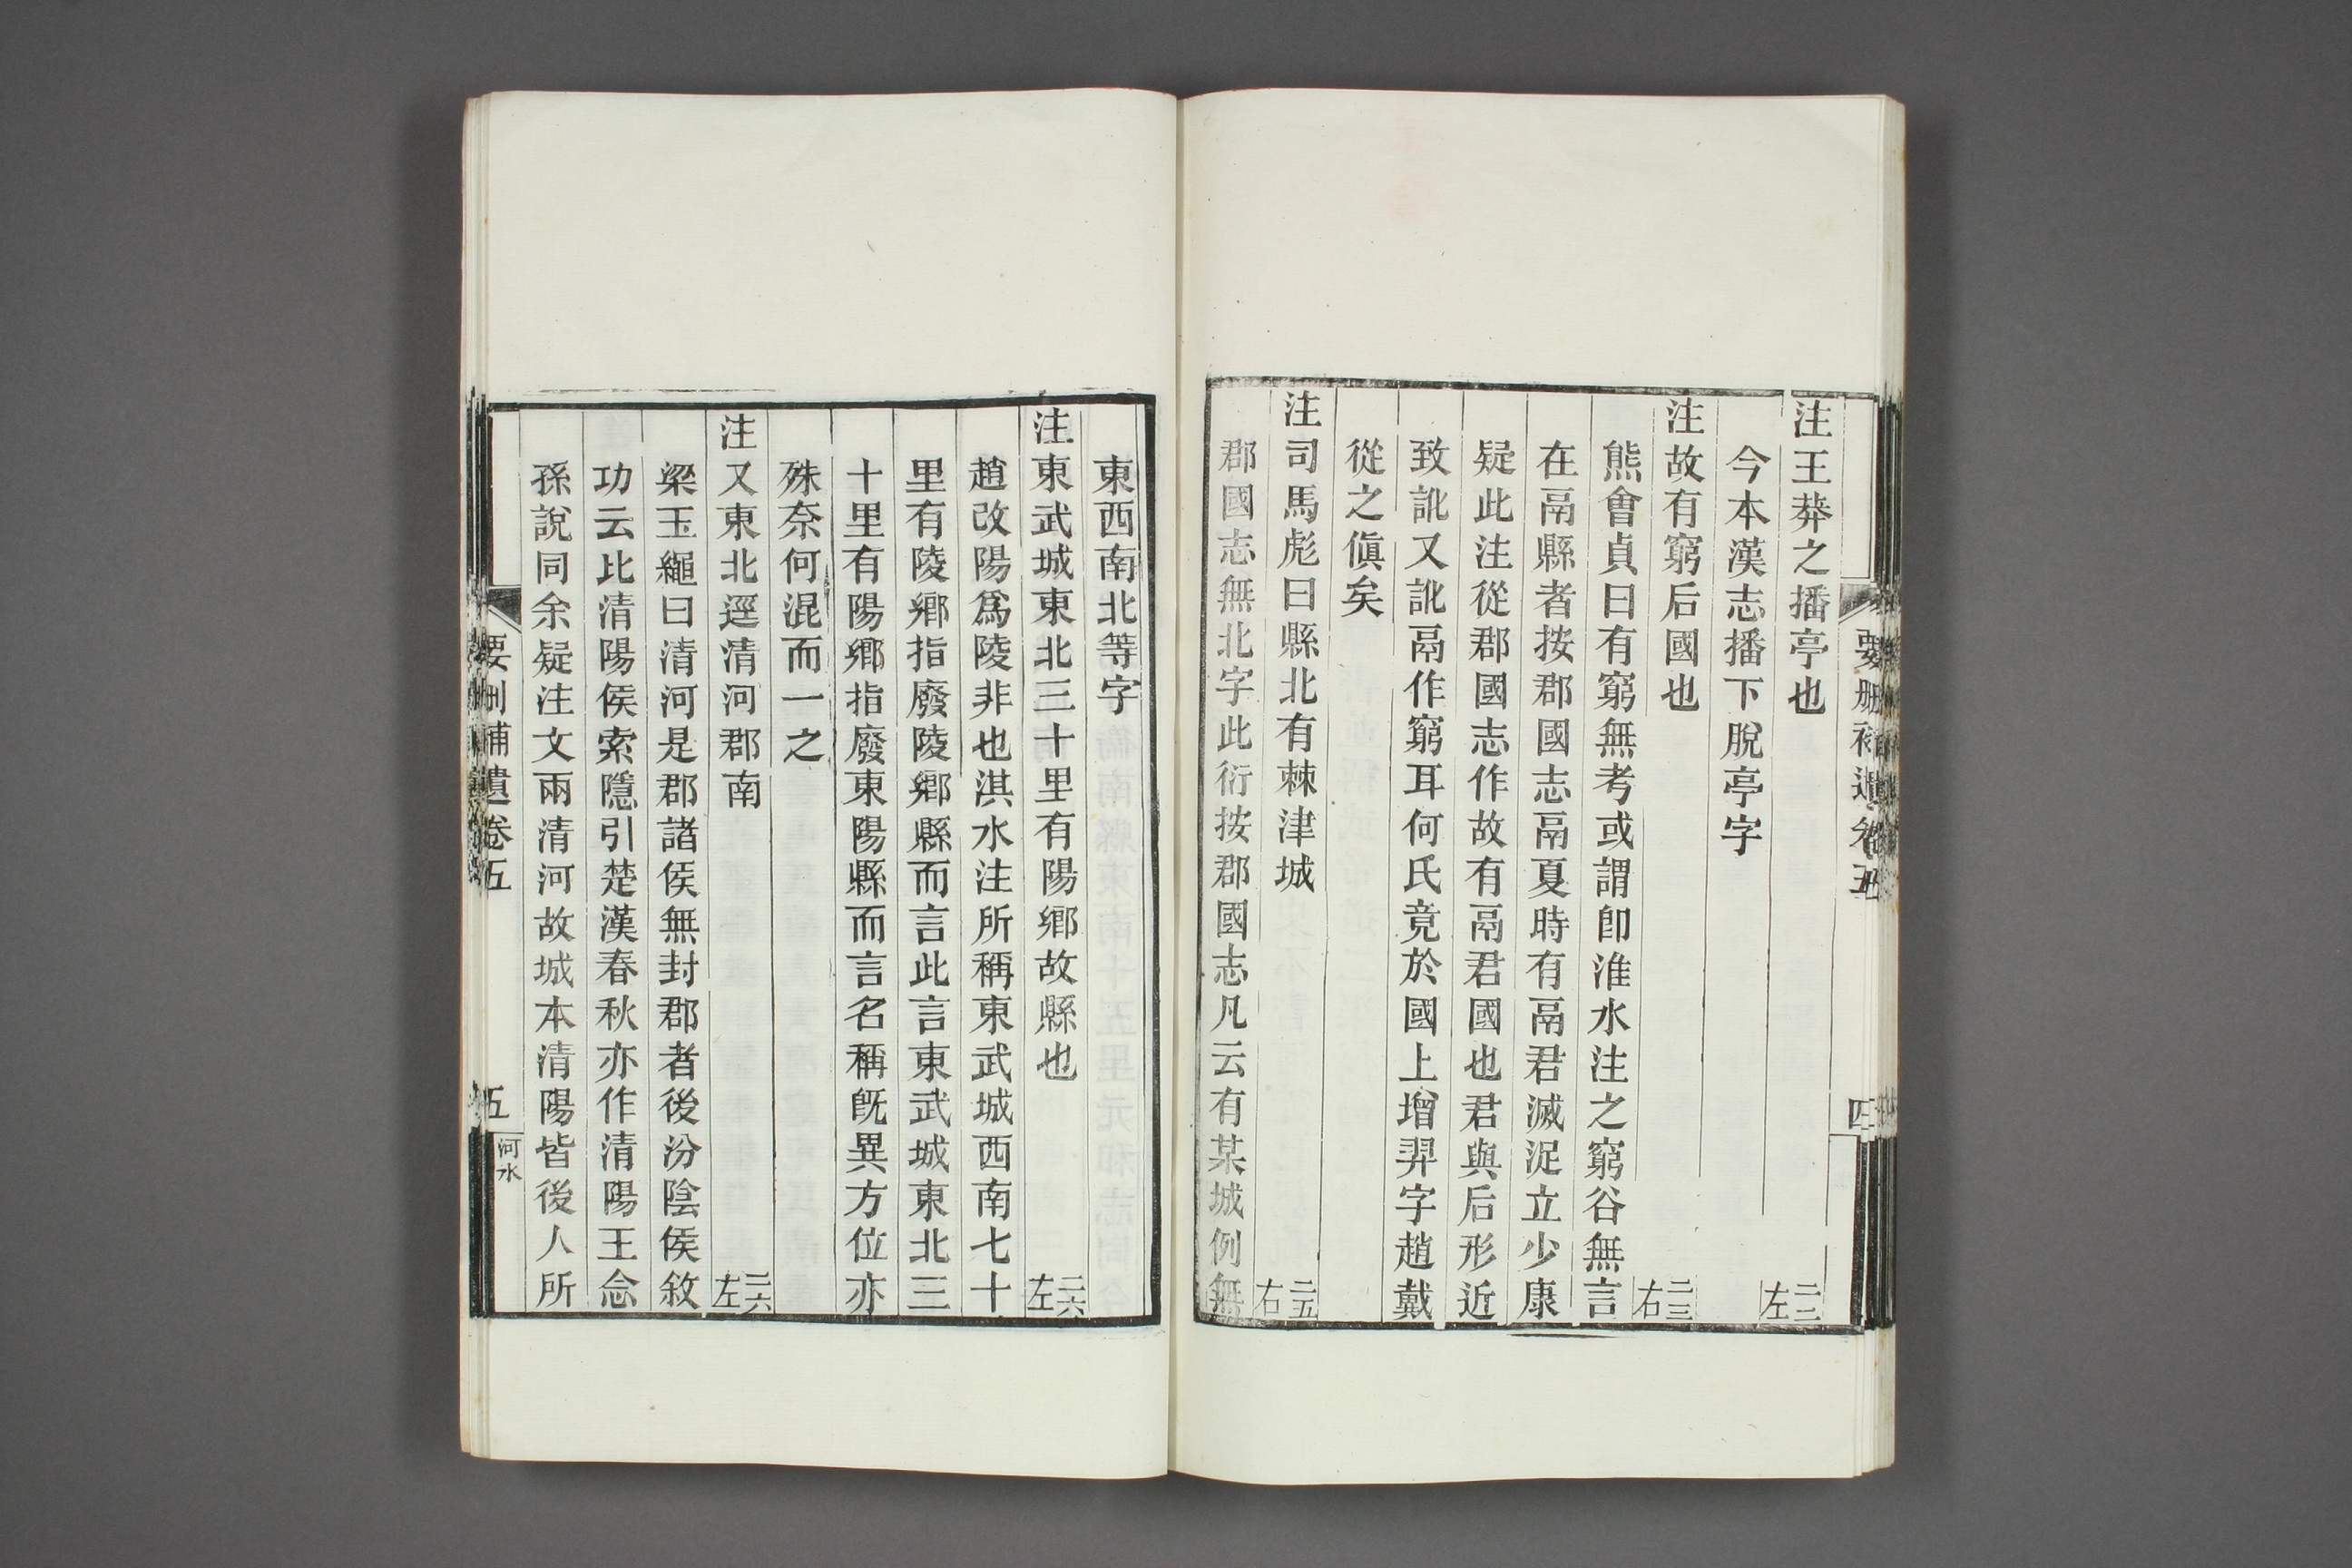 要刪補遺卷五
四
注王莽之播亭也 二二左
今本漢志播下脫亭字
注故有窮后國也 二三右
熊會貞曰有窮無考或謂卽淮水注之窮谷無言
在鬲縣者按郡國志鬲夏時有鬲君滅浞立少康
疑此注從郡國志作故有鬲君國也君與后形近
致訛又訛鬲作窮耳何氏竟於國上增羿字趙戴
從之傎矣
注司馬彪曰縣北有棘津城 二五右
郡國志無北字此衍按郡國志凡云有某城例無
東西南北等字
注東武城東北三十里有陽鄉故縣也 二六左
趙改陽爲陵非也淇水注所稱東武城西南七十
里有陵鄉指廢陵鄉縣而言此言東武城東北三
十里有陽鄉指廢東陽縣而言名稱旣異方位亦
殊奈何混而一之
注又東北逕清河郡南 二六左
梁玉繩曰清河是郡諸侯無封郡者後汾陰侯敘
功云比清陽侯索隱引楚漢春秋亦作清陽王念
孫說同余疑注文兩清河故城本清陽皆後人所
要刪補遺卷五
五
河水